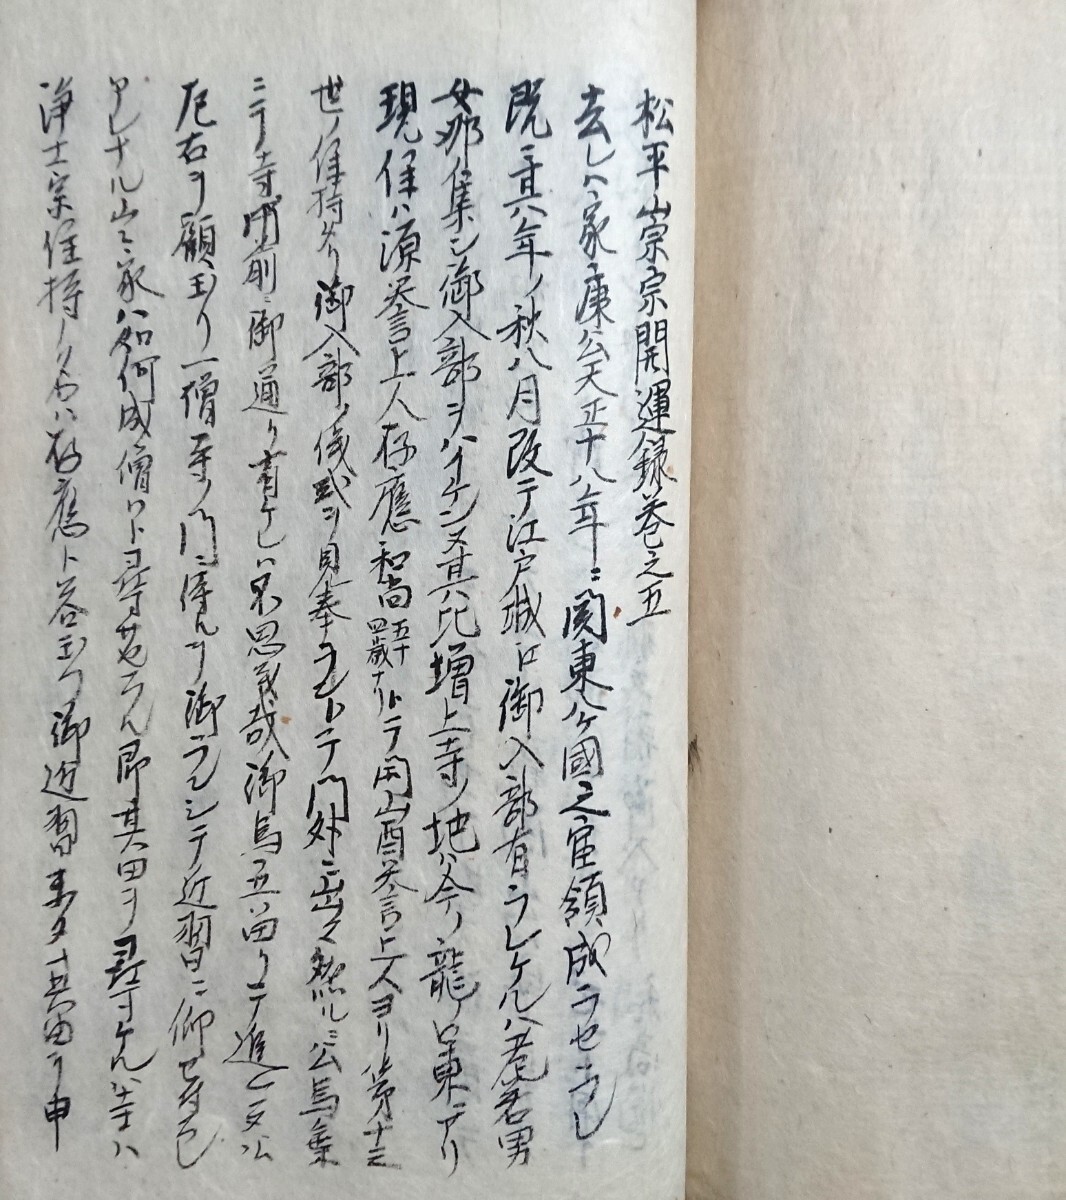 松平崇宗開運録巻之五
去レハ家康公天正十八年ニ関東八ケ國之官領成ラセラレ
既ニ其八年ノ秋八月改テ江戸城江御入部有ラレケル八老若男
女那集シ御入部ヲハイケン又其比増上寺ノ地ハ今ノ龍ノ口東ニアリ
現住ハ源誉上人存應和尚五十四歳ナリトテ開山酉誉上人ヨリ第十三
世ノ住持ナリ御入部ノ儀式ヲ見奉ラントテ門外ニ出ク然ルニ公馬乗
ニテ寺門前ニ御通リ有ケレハ不思義哉御馬立留リテ進ンタ公
左右ヲ顧玉リ一僧寺ノ門ニ侍んヲ御ランシテ近習ニ仰セ
アレナル山家ハ如何成僧ロト尋サセラん即其由ヲ尋ケん寺ハ
浄土宗住持ノ名ハ存應ト答玉フ御近習来タ其由ヲ申